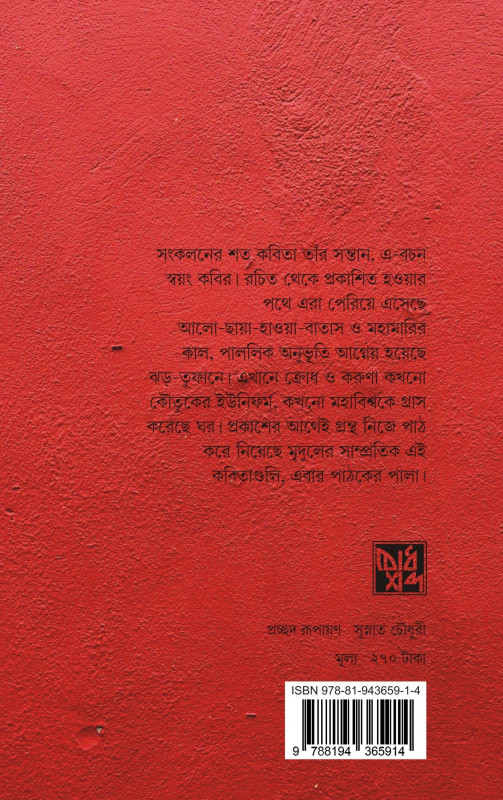 সংকলনের শত কবিতা তাঁর সন্তান, এ-বচন
স্বয়ং কবির। রচিত থেকে প্রকাশিত হওয়ার
পথে এরা পেরিয়ে এসেছে
আলো-ছায়া-হাওয়া-বাতাস ও মহামারির
কাল, পাললিক অনুভূতি আগ্নেয় হয়েছে
ঝড়-তুফানে। এখানে ক্রোধ ও করুণা কখনো
কৌতুকের ইউনিফর্ম, কখনো মহাবিশ্বকে গ্রাস
করেছে ঘর। প্রকাশের আগেই গ্রন্থ নিজে পাঠ
করে নিয়েছে মৃদুলের সাম্প্রতিক এই
কবিতাগুলি, এবার পাঠকের পালা।
বোধশব্দ
প্রচ্ছদ রূপায়ণ সুস্নাত চৌধুরী
মূল্য ২৭০ টাকা
ISBN 978-81-943659-1-4
9 788194 365914